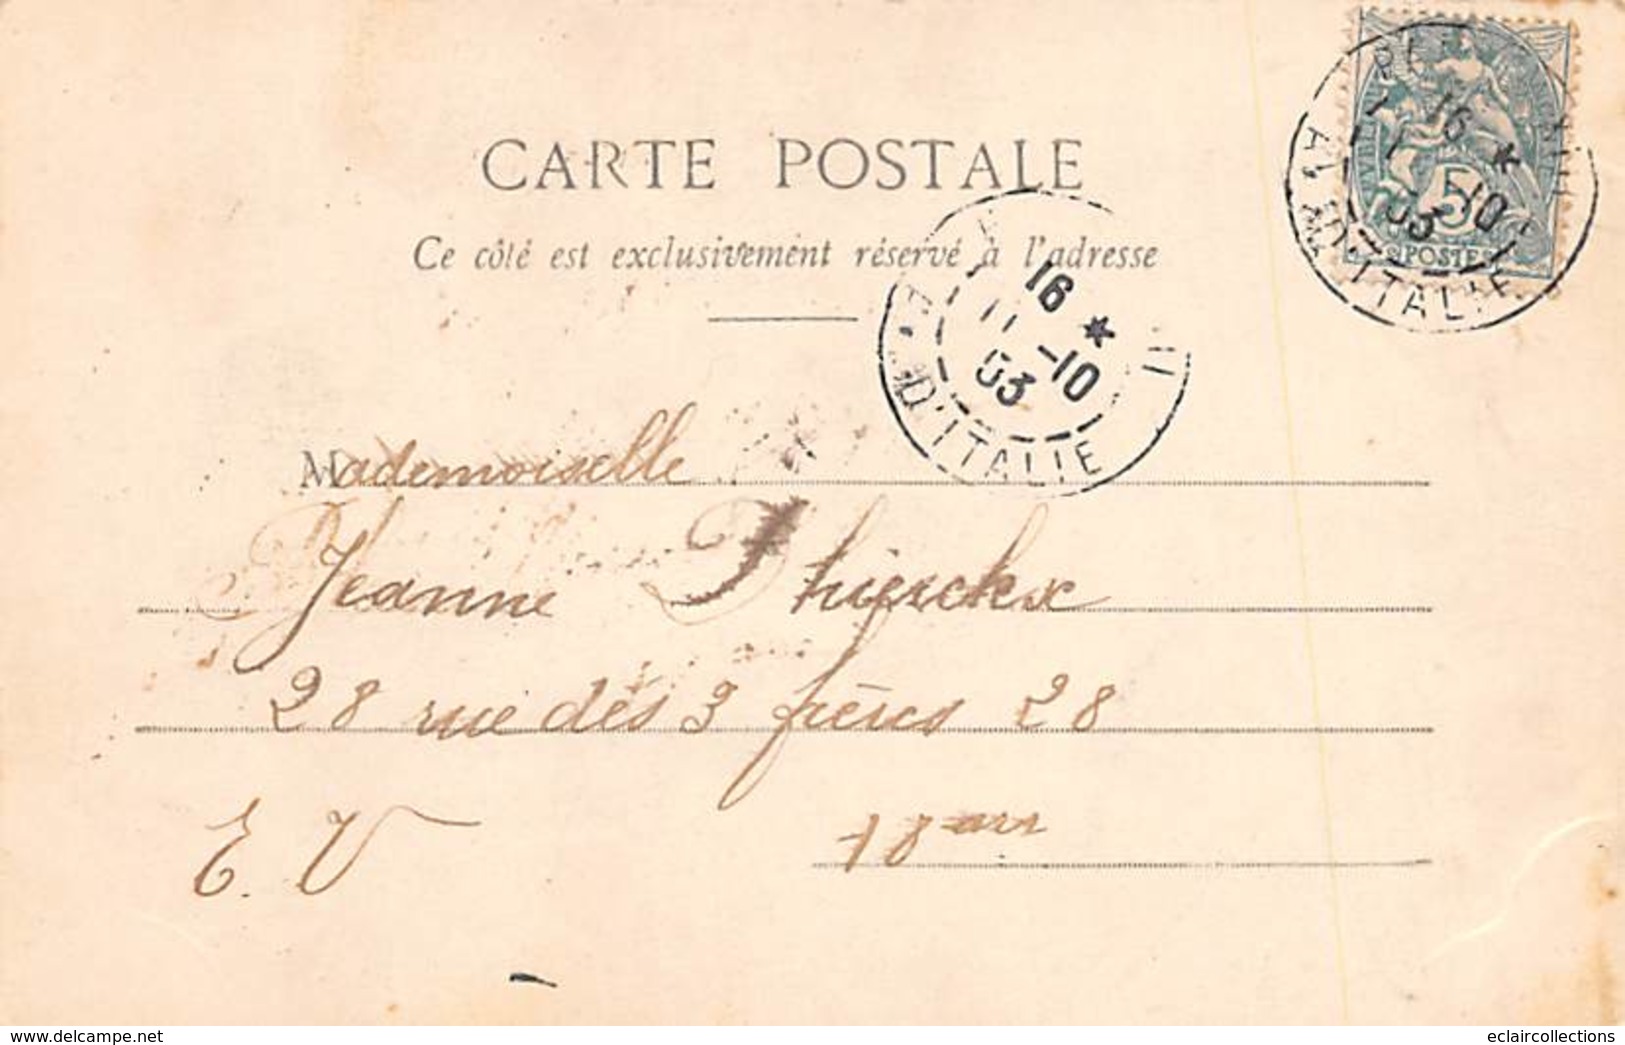 CARTE POSTALE
Ce côté est exclusivement réservé à l'adresse
16 *
11 -10
03
D'ITALIE
16 *
-10
03
5
POSTES
D'ITALIE
Mademoiselle
Jeanne Thierckx
28 rue dés 3 frères 28
E. V
18 arr
www.delcampe.net
eclaircollections